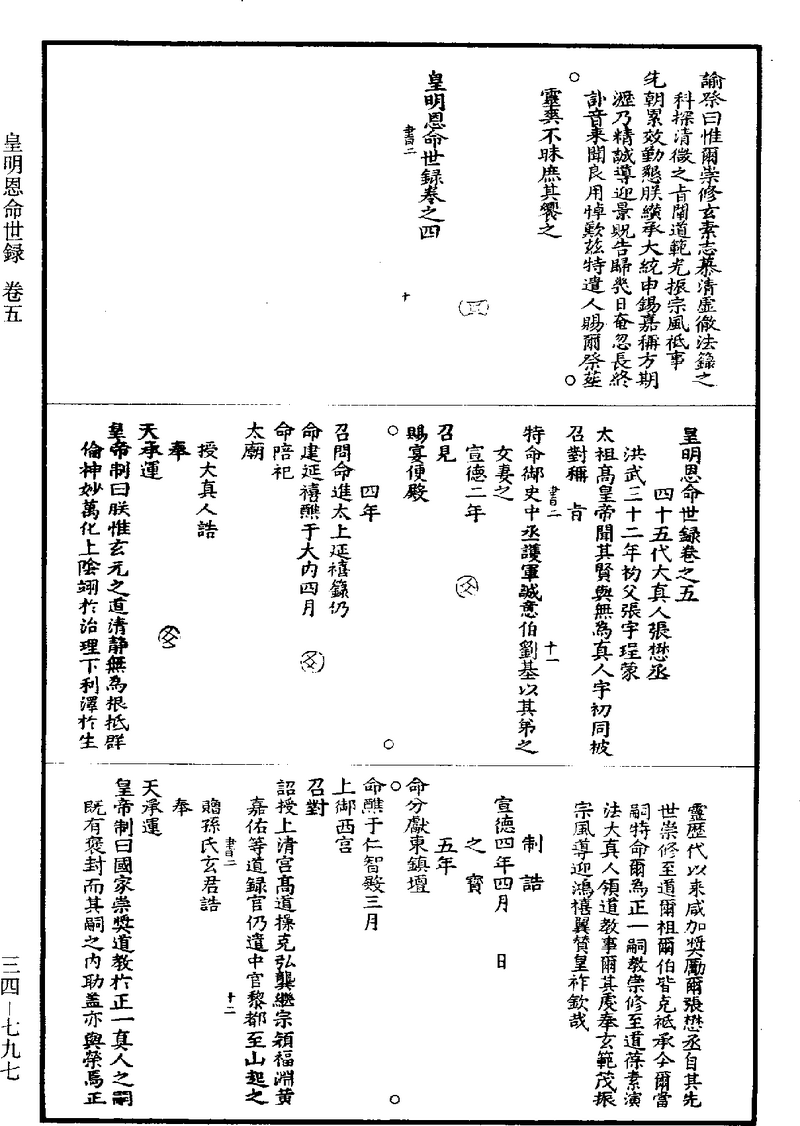 諭祭曰惟爾崇修玄素志慕清虛徹法籙之
科探清微之旨闡道範光振宗風祗事
先朝累效勤懇朕纘承大統申錫嘉稱方期
瀝乃精誠導迎景貺告歸幾日奄忽長終
訃音來聞良用悼歎茲特遣人賜爾祭筵
靈爽不昧庶其饗之
皇明恩命世録卷之四
書二
十
皇明恩命世録卷之五
四十五代大真人張懋丞
洪武三十二年初父張宇珵蒙
太祖高皇帝聞其賢與無為真人宇初同被
召對稱旨
書二
十一
特命御史中丞護軍誠意伯劉基以其弟之
女妻之
宣德二年
召見
賜宴便殿
四年
召問命進太上延禧籙仍
命建延禧醮于大内四月
命陪祀
太廟
授大真人誥
奉
天承運
皇帝制曰朕惟玄元之道清静無為根抵群
倫神妙萬化上陰翊於治理下利澤於生
靈歷代以來咸加奬勵爾張懋丞自其先
世崇修至道爾祖爾伯皆克祗承今爾當
嗣特命爾為正一嗣教崇修至道葆素演
法大真人領道教事爾其虔奉玄範茂振
宗風導迎鴻禧翼贊皇祚欽哉
制誥
宣德四年四月 日
之寶
五年
命分獻東鎮壇
命醮于仁智殿三月
上御西宫
召對
詔授上清宫高道操克弘龔繼宗穎福淵黄
嘉佑等道録官仍遣中官黎都至山起之
書二
十二
贈孫氏玄君誥
奉
天承運
皇帝制曰國家崇奬道教於正一真人之嗣
既有褒封而其嗣之内助蓋亦與榮焉正
皇明恩命世録 卷五
三四—七九七